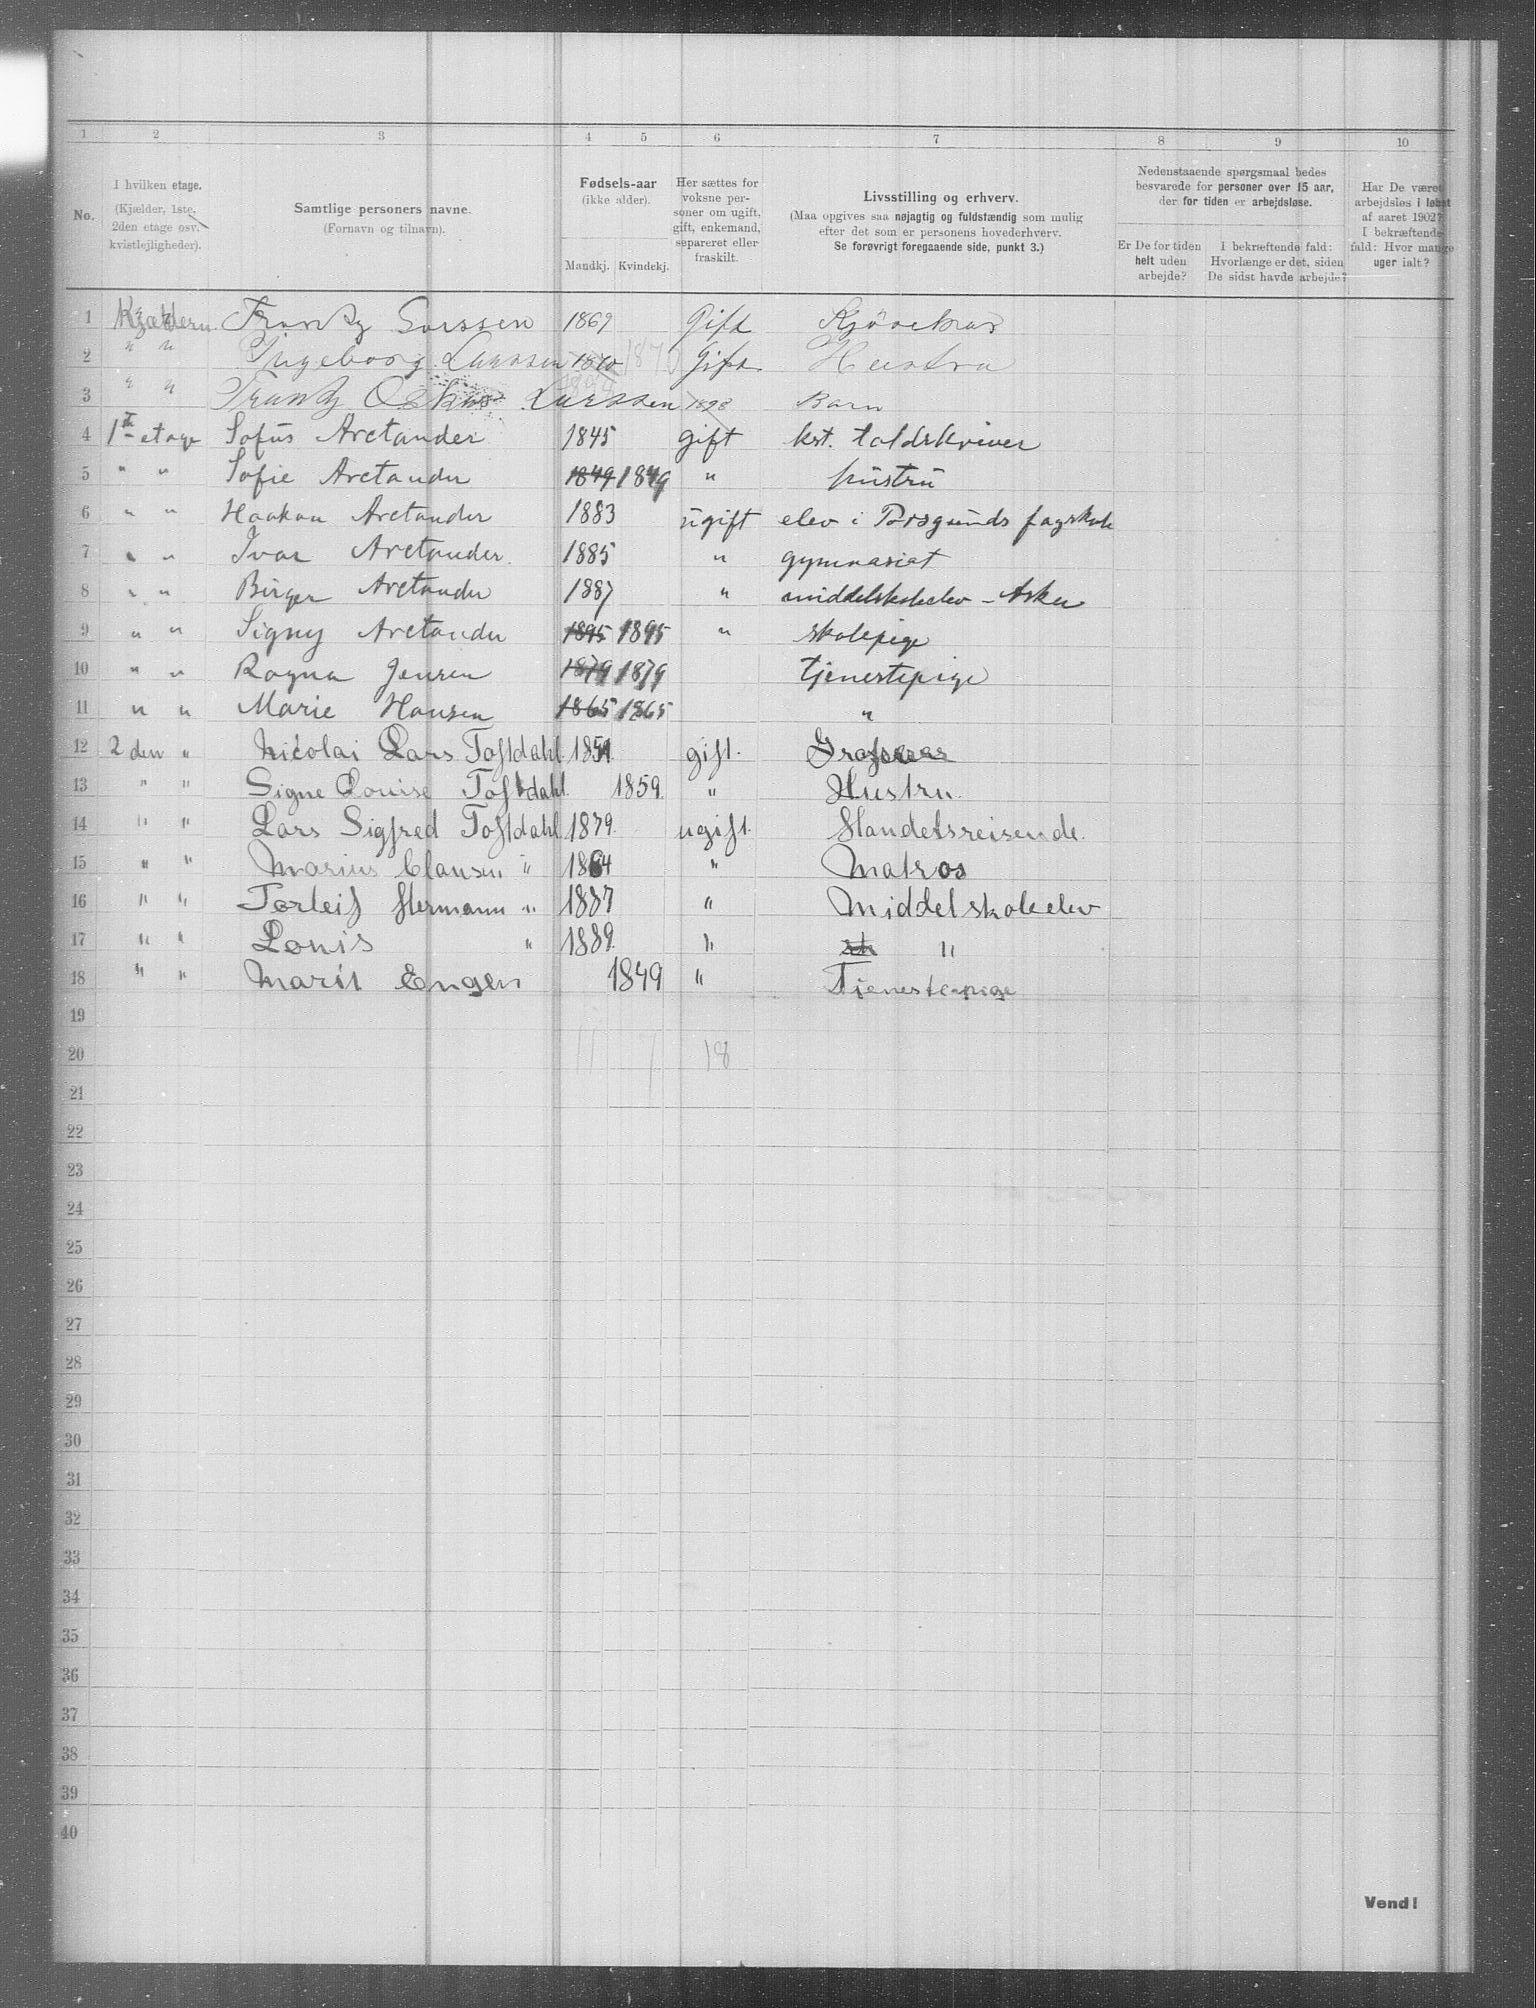 1 2 3 4 5 6 7 8 9 10
No.
I hvilken etage.
(Kjælder, 1ste,
2den etage osv.
kvistlejligheder).
Samtlige personers navne.
(Fornavn og tilnavn).
Fødsels-aar
(ikke alder).
Mandkj. Kvindekj.
Her sættes for
voksne per-
soner om ugift,
gift, enkemand,
separeret eller
fraskilt.
Livsstilling og erhverv.
(Maa opgives saa nøjagtig og fuldstændig som mulig
efter det som er personens hovederhverv.
Se forøvrigt foregaaende side, punkt 3.)
Nedenstaaende spørgsmaal bedes
besvarede for personer over 15 aar,
der for tiden er arbejdsløse.
Er De for tiden
helt uden
arbejde?
I bekræftende fald:
Hvorlænge er det, siden
De sidst havde arbejde?
Har De været
arbejdsløs i løbet
af aaret 1902?
I bekræftende
fald: Hvor mange
uger ialt?
1 Kjældern Frantz Larssen 1869 Gift
2 " " Ingeborg Larssen 1870 1870 Gift Hustru
3 " " Frantz Oskar Larssen 1898 Barn
4 1ste etage Sofus Arctander 1845 gift kst. toldskriver
5 " " Sofie Arctander 1849 1849 " hustru
6 " " Haakon Arctander 1883 ugift elev i Porsgrunds fagskole
7 " " Ivar Arctander. 1885 " gymnasiat
8 " " Birger Arctander 1887 " middelskoleelev - Asker
9 " " Signy Arctander 1895 1895 " skolepige
10 " " Ragna Jensen 1879 1879 tjenestepige
11 " " Marie Hansen 1865 1865 "
12 2den " Nicolai Lars Toftdahl 1851 gift.
13 " " Signe Louise Toftdahl. 1859. " Hustru.
14 " " Lars Sigfred Toftdahl 1879. ugift. Handelsreisende.
15 " " Marius Clausen " 1884 " Matros
16 " " Torleif Hermann " 1887 " Middelskoleelev
17 " " Louis " 1889. " "
18 " " Marit Engen 1849 " Tjenestepige
19
20 11 7 18
21
22
23
24
25
26
27
28
29
30
31
32
33
34
35
36
37
38
39
40
Vend!